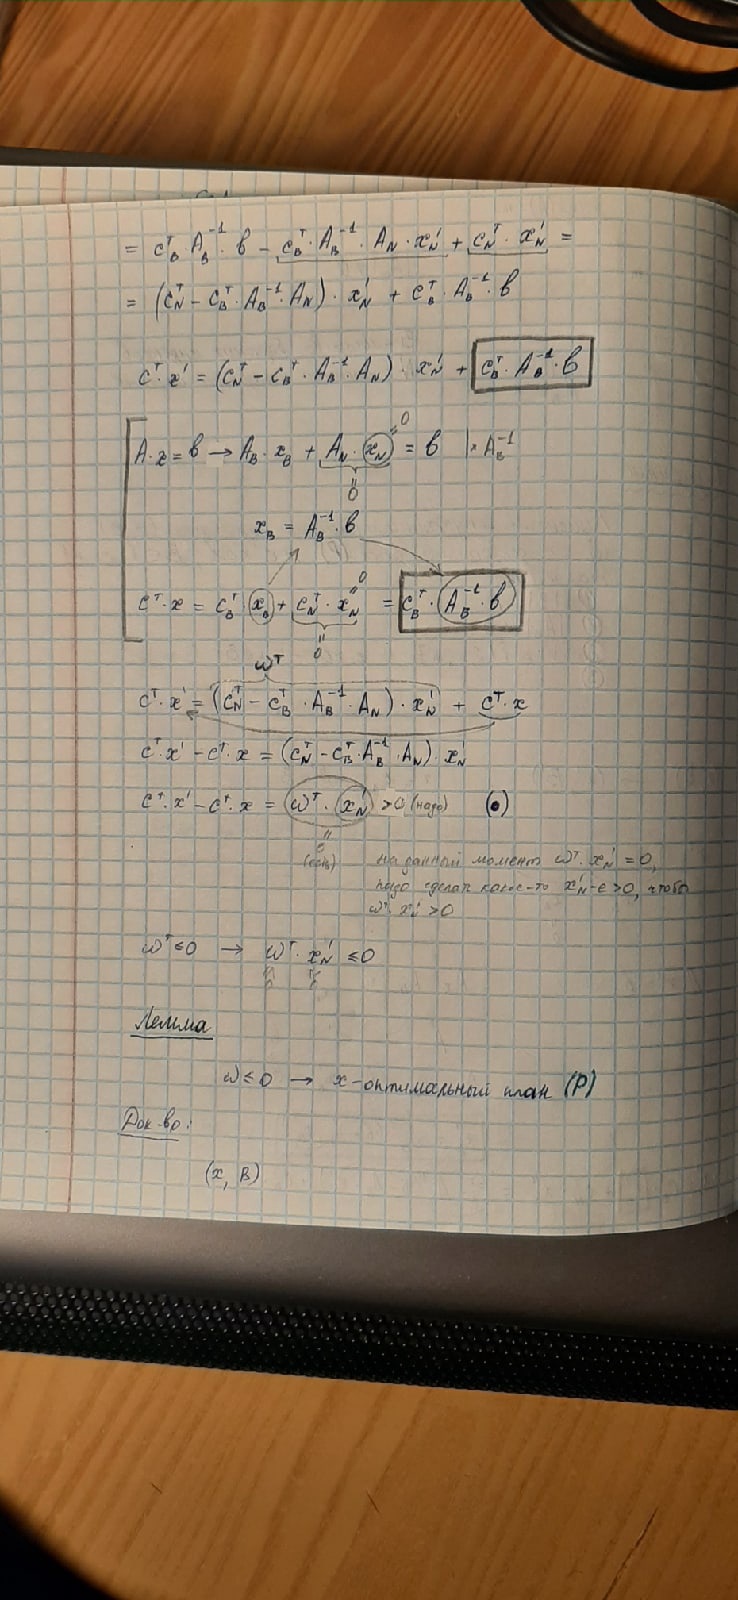 = c_B^T · A_B^{-1} · b - c_B^T · A_B^{-1} · A_N · x'_N + c_N^T · x'_N =
= (c_N^T - c_B^T · A_B^{-1} · A_N) · x'_N + c_B^T · A_B^{-1} · b
c^T · x' = (c_N^T - c_B^T · A_B^{-1} · A_N) · x'_N + c_B^T · A_B^{-1} · b
A · x = b → A_B · x_B + A_N · x_N = b | × A_B^{-1}
x_B = A_B^{-1} · b
c^T · x = c_B^T · x_B + c_N^T · x_N = c_B^T · A_B^{-1} · b
ω^T
c^T · x' = (c_N^T - c_B^T · A_B^{-1} · A_N) · x'_N + c^T · x
c^T · x' - c^T · x = (c_N^T - c_B^T · A_B^{-1} · A_N) · x'_N
c^T · x' - c^T · x = ω^T · x'_N > 0 (надо)
на данный момент ω^T · x'_N = 0,
надо сделать какие-то x'_N-е > 0, чтобы
ω^T x'_N > 0
ω^T ≤ 0 → ω^T · x'_N ≤ 0
Лемма
ω ≤ 0 → x - оптимальный план (P)
Док-во:
(x, B)